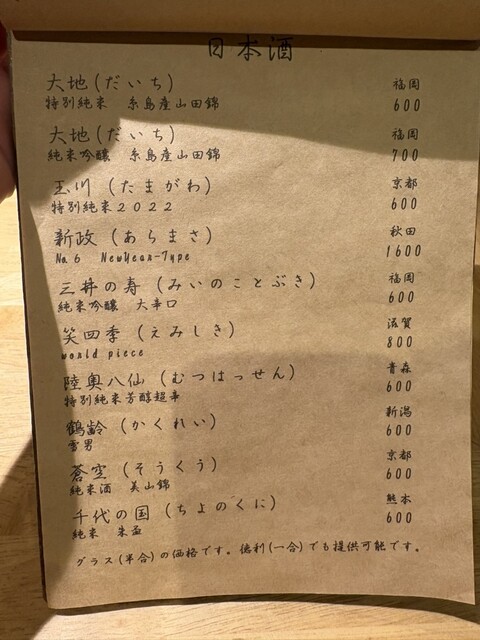 日本酒
大地(だいち) 福岡
特別純米 糸島産山田錦 600
大地(だいち) 福岡
純米吟醸 糸島産山田錦 700
玉川(たまがわ) 京都
特別純米2022 600
新政(あらまさ) 秋田
No.6 NewYear-Type 1600
三井の寿(みいのことぶき) 福岡
純米吟醸 大辛口 600
笑四季(えみしき) 滋賀
world piece 800
陸奥八仙(むつはっせん) 青森
特別純米芳醇超辛 600
鶴齢(かくれい) 新潟
雪男 600
蒼空(そうくう) 京都
純米酒 美山錦 600
千代の国(ちよのくに) 熊本
純米 朱盃 600
グラス(半合)の価格です。徳利(一合)でも提供可能です。